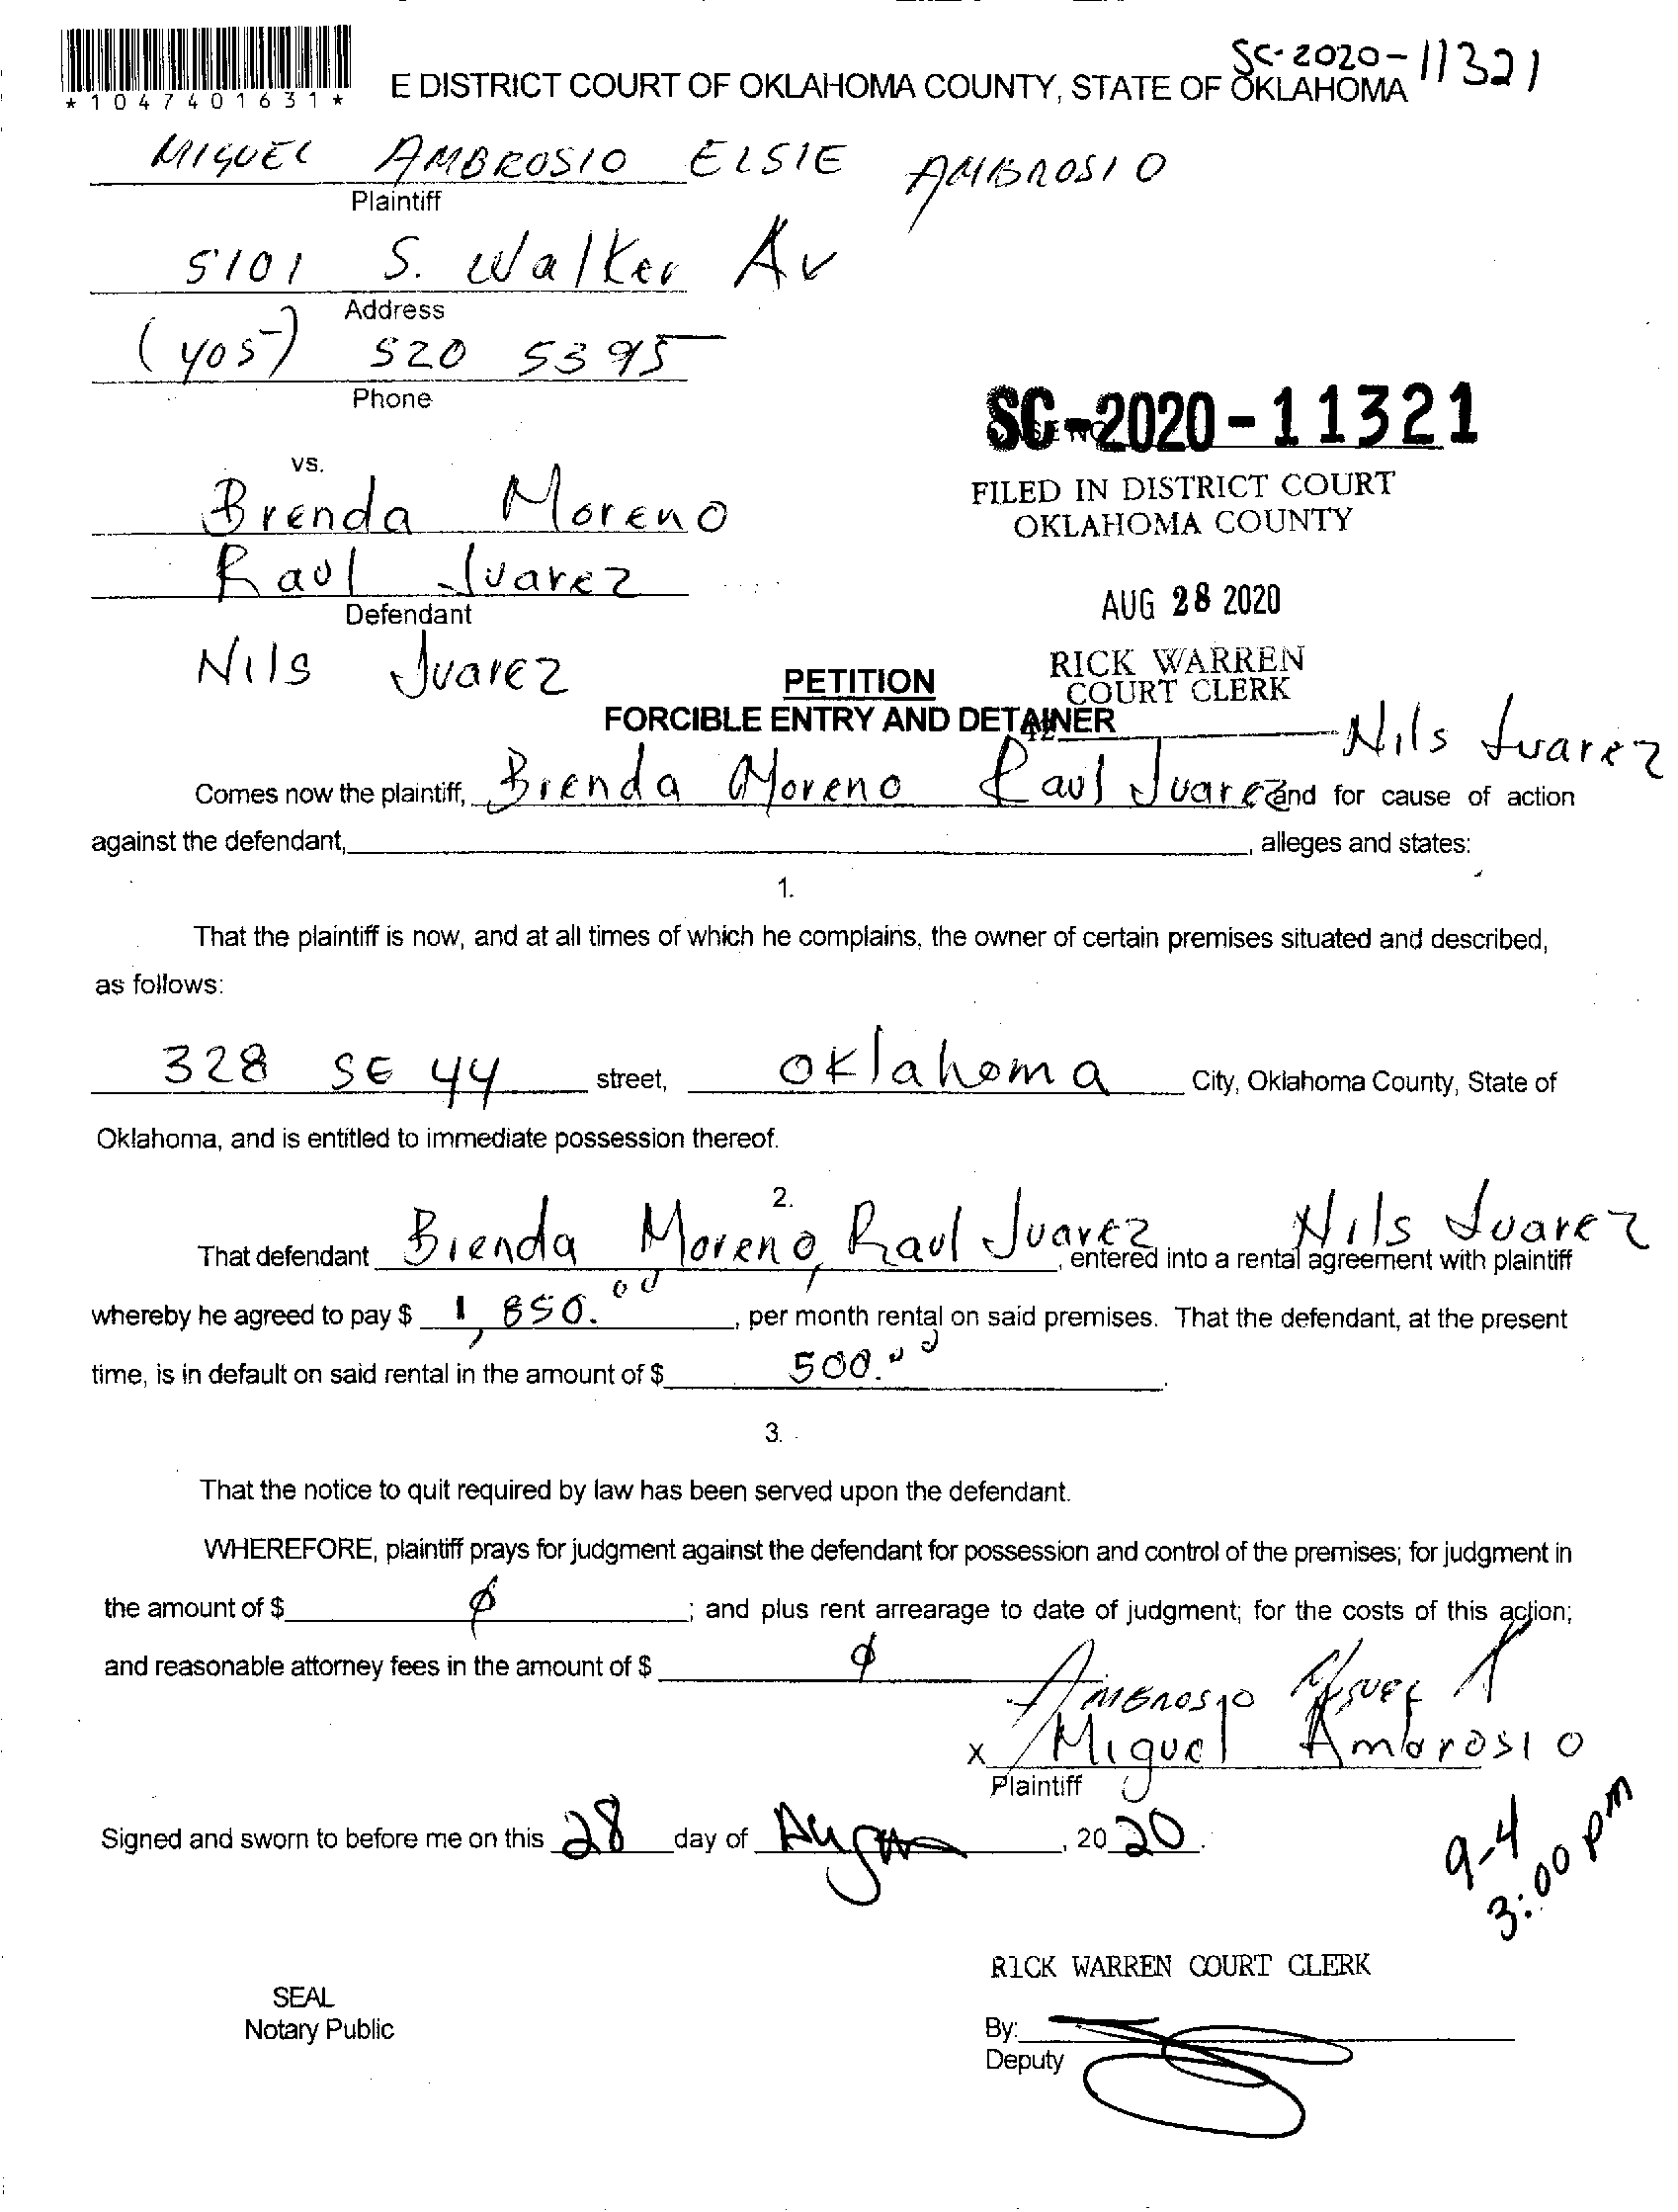 SC-2020-11321
*1047401631*
E DISTRICT COURT OF OKLAHOMA COUNTY, STATE OF OKLAHOMA
MIGUEL AMBROSIO ELSIE AMBROSIO
Plaintiff
5101 S. Walker Av
Address
(405) 520 5395
Phone
SC-2020-11321
vs.
Brenda Moreno
FILED IN DISTRICT COURT
OKLAHOMA COUNTY
Raul Juarez
Defendant
AUG 28 2020
Nils Juarez
RICK WARREN
COURT CLERK
PETITION
FORCIBLE ENTRY AND DETAINER
42
Nils Juarez
Comes now the plaintiff, Brenda Moreno Raul Juarez and for cause of action
against the defendant, , alleges and states:
1.
That the plaintiff is now, and at all times of which he complains, the owner of certain premises situated and described,
as follows:
328 SE 44 street, Oklahoma City, Oklahoma County, State of
Oklahoma, and is entitled to immediate possession thereof.
2.
That defendant Brenda Moreno, Raul Juarez Nils Juarez, entered into a rental agreement with plaintiff
whereby he agreed to pay $ 1,850.00, per month rental on said premises. That the defendant, at the present
time, is in default on said rental in the amount of $ 500.00.
3.
That the notice to quit required by law has been served upon the defendant.
WHEREFORE, plaintiff prays for judgment against the defendant for possession and control of the premises; for judgment in
the amount of $ ϕ; and plus rent arrearage to date of judgment; for the costs of this action;
and reasonable attorney fees in the amount of $ ϕ
AMBROSIO MIGUEL A
x Miguel Ambrosio
Plaintiff
Signed and sworn to before me on this 28 day of Aug, 2020.
9-4
3:00 pm
RICK WARREN COURT CLERK
SEAL
Notary Public
By:
Deputy